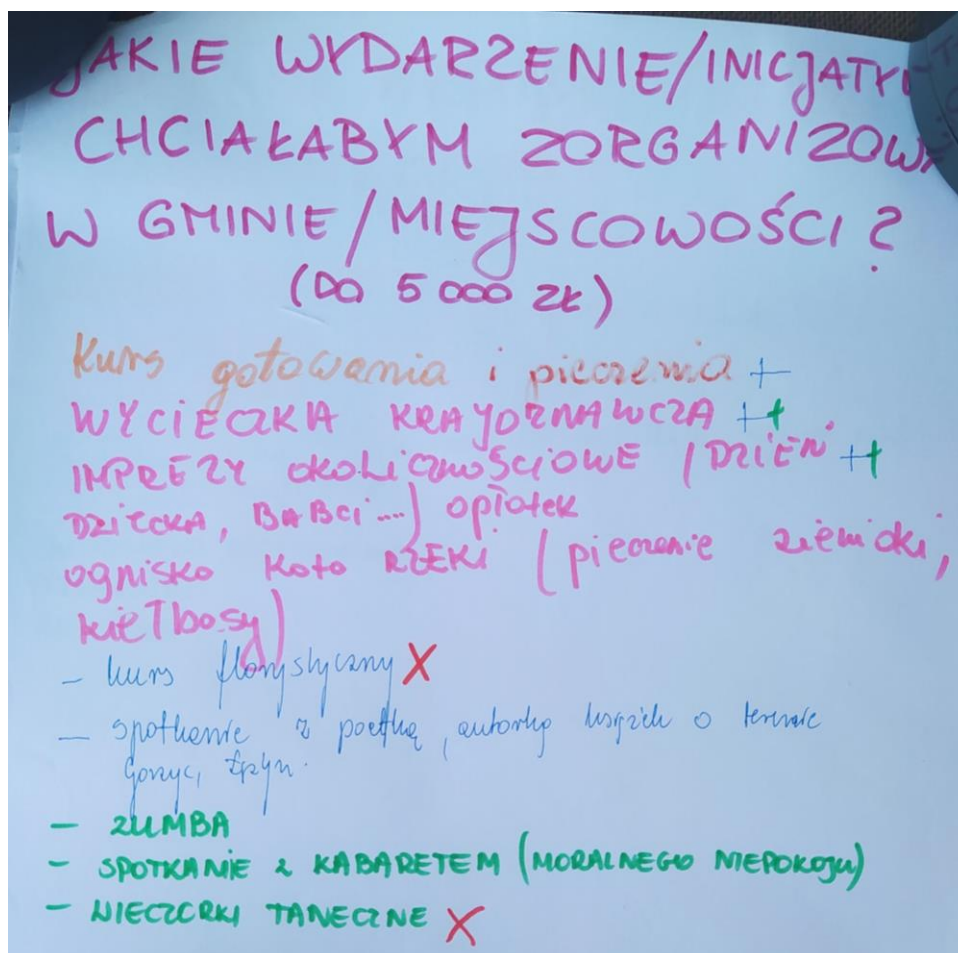 JAKIE WYDARZENIE/INICJATY
CHCIAŁABYM ZORGANIZOW
W GMINIE/MIEJSCOWOŚCI?
(DO 5000 ZŁ)
Kurs gotowania i pieczenia +
WYCIECZKA KRAJOZNAWCZA ++
IMPREZY OKOLICZNOŚCIOWE (DZIEŃ ++
DZIECKA, BABCI....) opłatek
ognisko koło RZEKI (pieczenie ziemiaki,
kiełbasy)
- kurs florystyczny X
- spotkanie z poetką, autorką książek o terenie
Gorzyc,
- ZUMBA
- SPOTKANIE Z KABARETEM (MORALNEGO NIEPOKOJU)
- WIECZORKI TANECZNE X